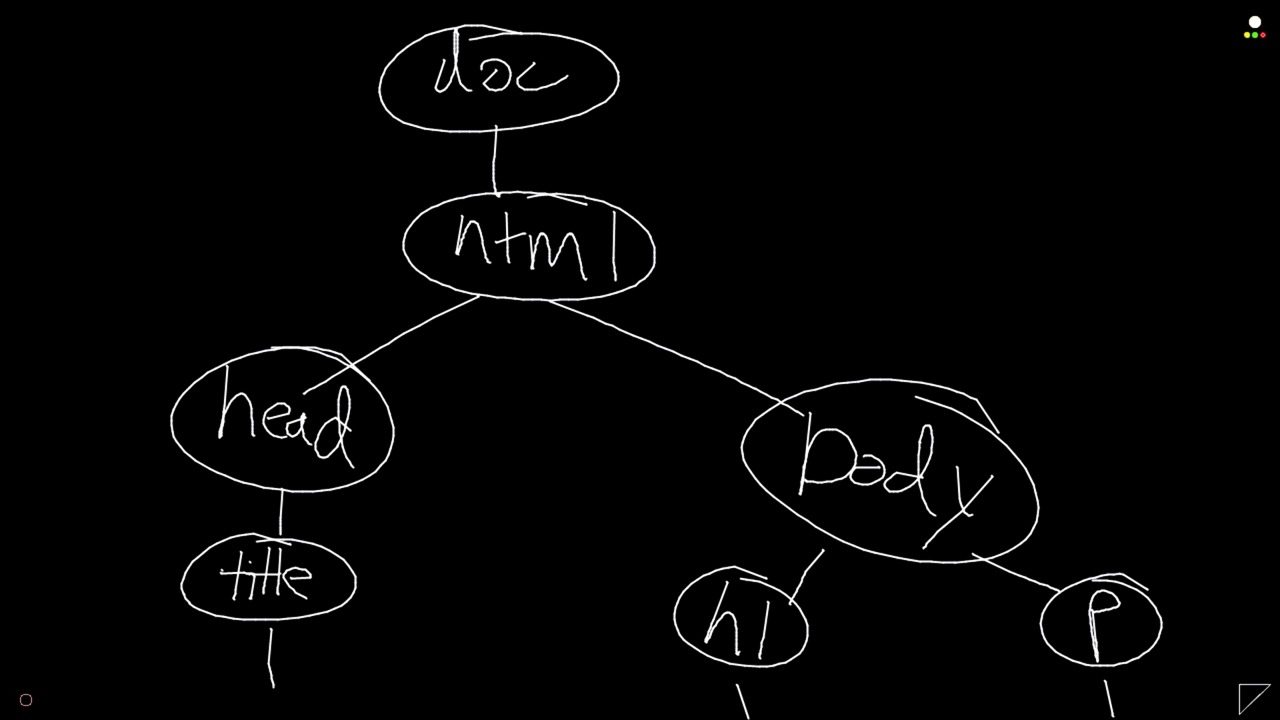 doc
html
head
body
title
h1
p